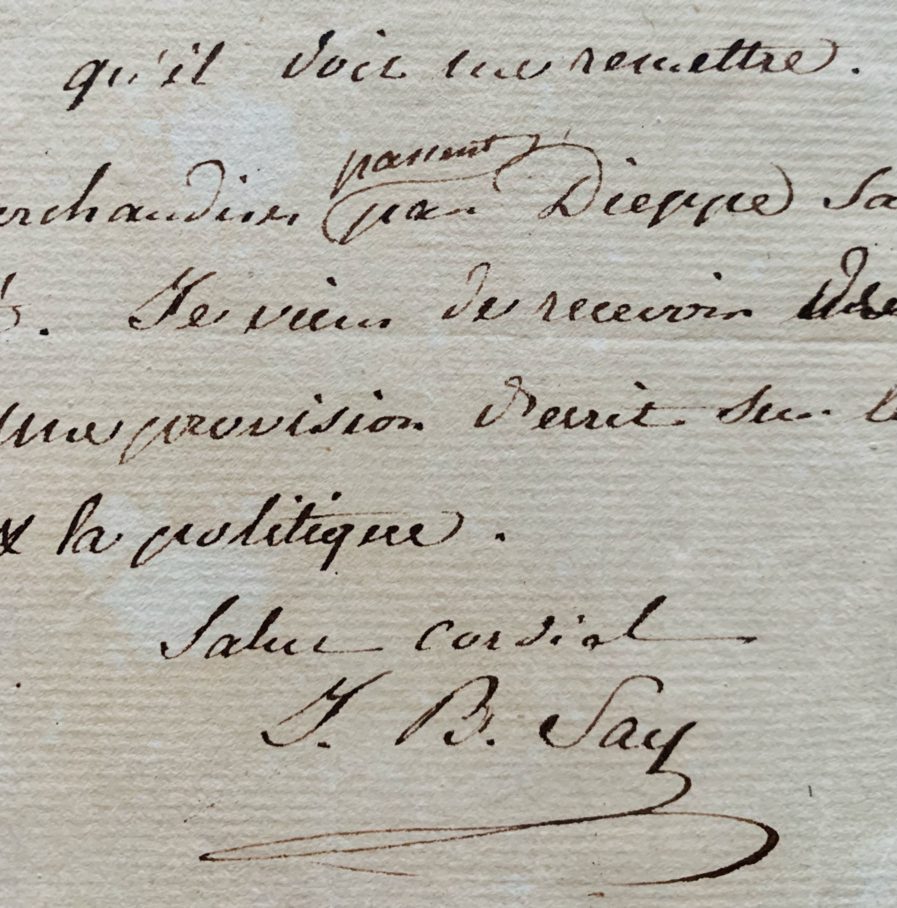 qu'il doit me remettre.
passent
archandises par Dieppe sa
Je viens de recevoir
une provision d'ecrit sur l
& la politique.
Salut cordial
J. B. Say